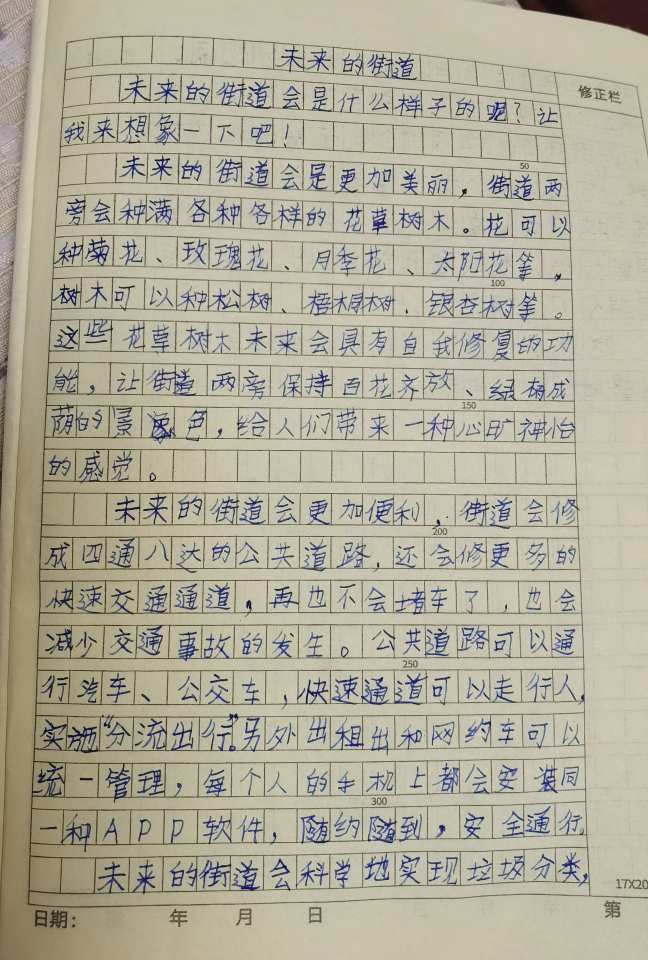 未来的街道
修正栏
未来的街道会是什么样子的呢？让
我来想象一下吧！
50
未来的街道会是更加美丽，街道两
旁会种满各种各样的花草树木。花可以
种菊花、玫瑰花、月季花、太阳花等，
100
树木可以种松树、梧桐树、银杏树等。
这些花草树木未来会具有自我修复的功
能，让街道两旁保持百花齐放、绿树成
150
荫的景色，给人们带来一种心旷神怡
的感觉。
未来的街道会更加便利，街道会修
200
成四通八达的公共道路，还会修更多的
快速交通通道，再也不会堵车了，也会
减少交通事故的发生。公共道路可以通
250
行汽车、公交车，快速通道可以走行人，
实施“分流出行”。另外出租出和网约车可以
统一管理，每个人的手机上都会安装同
300
一种APP软件，随约随到，安全通行。
未来的街道会科学地实现垃圾分类，
17X20
日期： 年 月 日 第